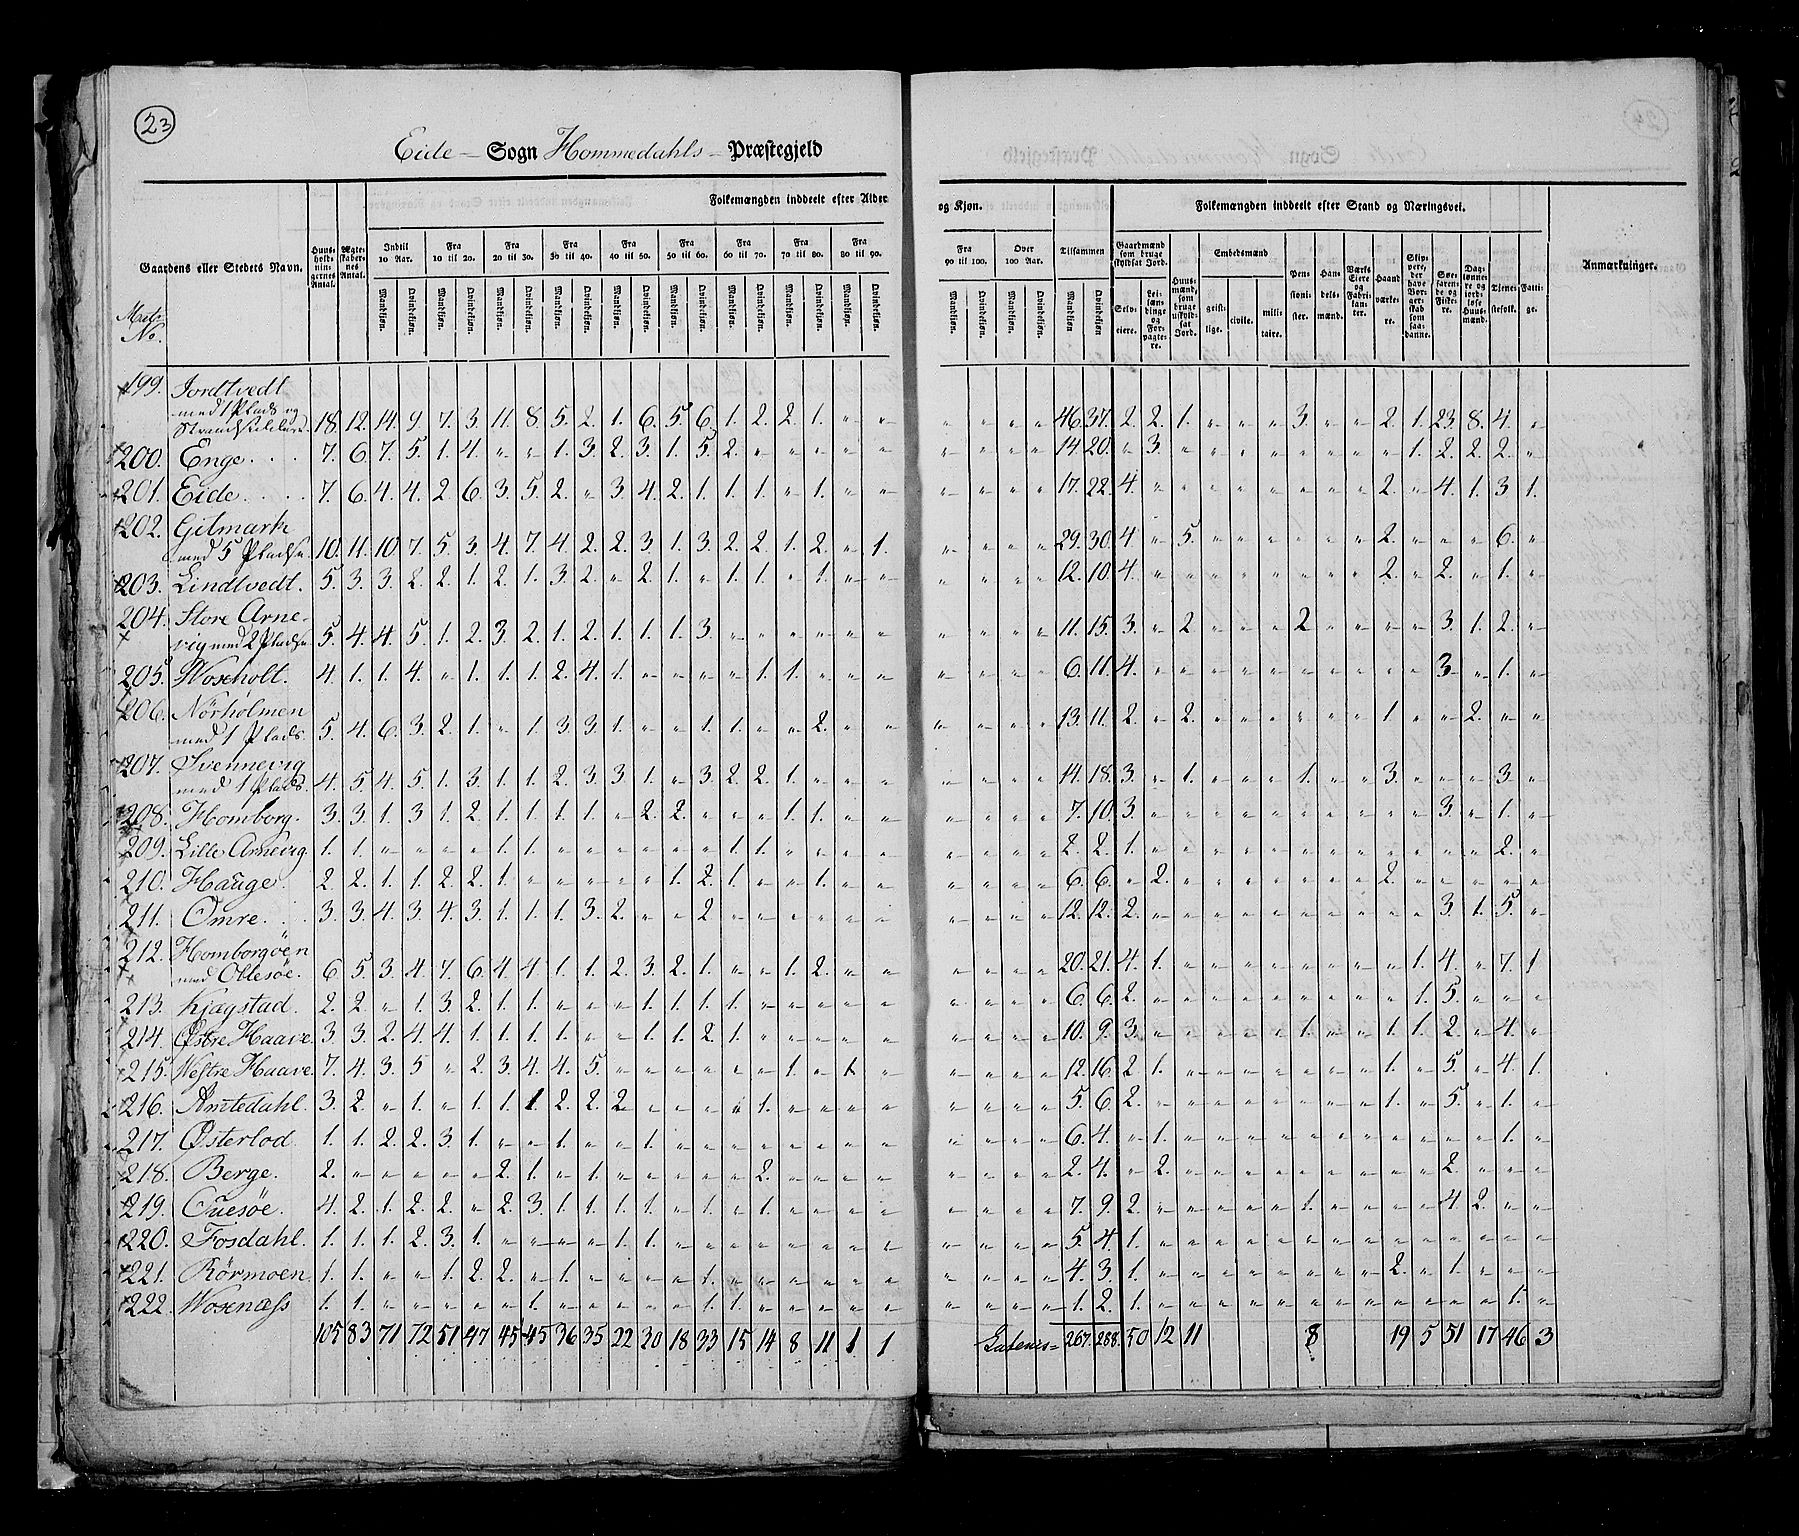 23
Eide - Sogn Hommedahls - Præstegjeld
Folkemængden inddeelt efter Alder og Kjøn.
Folkemængden inddeelt efter Stand og Næringsvei.
Matr: No.
Gaardens eller Stedets Navn.
Huusholdningernes Antal.
Ægteskabernes Antal.
Indtil 10 Aar.
Fra 10 til 20.
Fra 20 til 30.
Fra 30 til 40.
Fra 40 til 50.
Fra 50 til 60.
Fra 60 til 70.
Fra 70 til 80.
Fra 80 til 90.
Fra 90 til 100.
Over 100 Aar.
Tilsammen
Mandkjøn. Qvindekjøn.
Gaardmænd som bruge skyldsat Jord.
Selveiere.
Leilændinge og Forpagtere.
Huusmænd, som bruge uskyldsat Jord.
Embedsmænd
geistlige. civile. militaire.
Pensionister.
Handelsmænd.
Værks Eiere og Fabrikanter.
Haandværkere.
Skippere, der have Borgerskab som saadanne.
Søefarende og Fiskere.
Daglønnere og jordløse Huusmænd.
Tjenestefolk.
Fattige.
Anmærkninger.
199. Jordtvedt
med 1 Plads og
18. 12. 14. 9. 7. 3. 11. 8. 5. 2. 1. 6. 5. 6. 1. 2. 2. 1. " " " " " " 46. 37. 2. 2. 1. " " " 3. " " 2. 1. 23. 8. 4. "
200. Enge 7. 6. 7. 5. 1. 4. " " 1. 3. 2. 3. 1. 5. 2. " " " " " " " " " 14. 20. " 3. " " " " " " " " 1. 2. 2. 2. "
201. Eide 7. 6. 4. 4. 2. 6. 3. 5. 2. " 3. 4. 2. 1. 1. 1. " 1. " " " " " " 17. 22. 4. " " " " " " " " 2. " 4. 1. 3 1.
202. Gitmark
med 5 Pladse 10. 11. 10. 7. 5. 3. 4. 7. 4. 2. 2. 3. 1. 3. 2. 2. 1. 2. " 1 " " " " 29. 30. 4 " 5. " " " " " " 2. " " " 6. "
203. Lindtvedt. 5. 3. 3. 2. 2. 1. 2. 1. 3. 2. " 2. 1. " 1. 1. " 1. " " " " " " 12. 10. 4. " " " " " " " " 2. " 2. " 1. "
204. Store Arne-
vig med 2 Pladse 5. 4. 4. 5. 1. 2. 3. 2. 1. 2. 1. 1. 1. 3. " " " " " " " " " " 11. 15. 3. " 2 " " " 2 " " " " 3. 1. 2. "
205. Woxholt. 4. 1. 1. 4. " 1. 1. 1. 2. 4. 1. " " " " 1. 1. " " " " " " " 6. 11. 4. " " " " " " " " " " 3. " 1. "
206. Nörholmen
med 1 Plads. 5. 4. 6. 3. 2. 1. " 1. 3. 3. 1. " " 1. 1. " " 2. " " " " " " 13. 11. 2. " 2. " " " " " " 1. " " 2. " "
207. Svennevig
med 1 Plads. 4. 5. 4. 5. 1. 3. 1. 1. 2. 3. 3. 1. " 3. 2. 2. 1. " " " " " " " 14. 18. 3. " 1. " " " 1. " " 3. " " " 3. "
208. Homborg. 3. 3. 1. 3. 1. 2. 1. 1. 1. 1. " 2. 2. " " " 1. 1. " " " " " " 7. 10. 3. " " " " " " " " " " 3. " 1. "
209. Lille Arnevig. 1. 1. " " " " 1. 1. " " " " " " 1. 1. " " " " " " " " 2. 2. 1. " " " " " " " " " " " " 2. "
210. Hauge. 2. 2. 1. 1. 2. 2. 1. " " " " " 1. 2. 1. " " 1. " " " " " " 6. 6. " 2. " " " " " " " 2. " " " " "
211. Omre. 3. 3. 4. 3. 4. 3. 1. 1. 1. 3. 2. " " 2 " " " " " " " " " " 12. 12. 2. " " " " " " " " " " 3. 1. 5. "
212. Homborgøen
med Ollesøe. 6. 5. 3. 4. 7. 6. 4. 4. 1. 1. 2. 3. 2. 1. " " 1. 2. " " " " " " 20. 21. 4. 1. " " " " " " " " 1. 4. " 7. 1
213. Kjagstad. 2. 2. " 1. 3. 2. 1. 1. " " " 1. 1. 1. 1. " " " " " " " " " 6. 6. 2. " " " " " " " " " 1. 5. " " "
214. Østre Haave. 3. 3. 2. 4. 4. 1. 1. 1. 1. " " 1. 1. 2. 1. " " " " " " " " " 10. 9. 3. " " " " " 1. " " 1. 1. 2. " 4. "
215. Westre Haave. 7. 4. 3. 5. " 2. 3. 4. 4. 5. " " " " " " 1. " 1. " " " " " 12. 16. 2. 1. " " " " " " " 1. " 5. " 4. 1.
216. Amtedahl. 3. 2. " 1. " 1. 1. 1. 2. 2. 2. " " " " 1. " " " " " " " " 5. 6. 2. " " " " " " " " 1. " 5. " 1. "
217. Østerlod 1. 1. 2. 2. 3. 1. " " 1. " " 1. " " " " " " " " " " " " 6. 4. " 1. " " " " " " " " " " " 1. "
218. Berge. 2. " " " " " 2. 1. " 1. " " " " " 2. " " " " " " " " 2. 4. " 2. " " " " " " " " " 2. " " "
219. Ouesøe. 4. 2. 1. 2. 2. " 2. 3. 1. 1. 1. 1. " 1. " 1. " " " " " " " " 7. 9. 2. " " " " " 1. " " " " 4. 2. " "
220. Fosdahl. 1. 1. 1. 2. 3. 1. " " " " 1. 1. " " " " " " " " " " " " 5. 4. 1. " " " " " " " " " " " " " "
221. Rörmoen. 1. 1. " " 1. 2. 2. " 1. " " " " 1. " " " " " " " " " " 4. 3. 1. " " " " " " " " 2. " 1. " " "
222. Wosenæss 1. 1. " " " " " 1. " " " " " 1. 1. " " " " " " " " " 1. 2. 1. " " " " " " " " " " " " 1. "
105 83 71 72 51 47 45 45 36 35 22 30 18 33 15 14 8 11 1 1 Lateris = 267. 288. 50 12 11 8 19 5 51 17 46 3